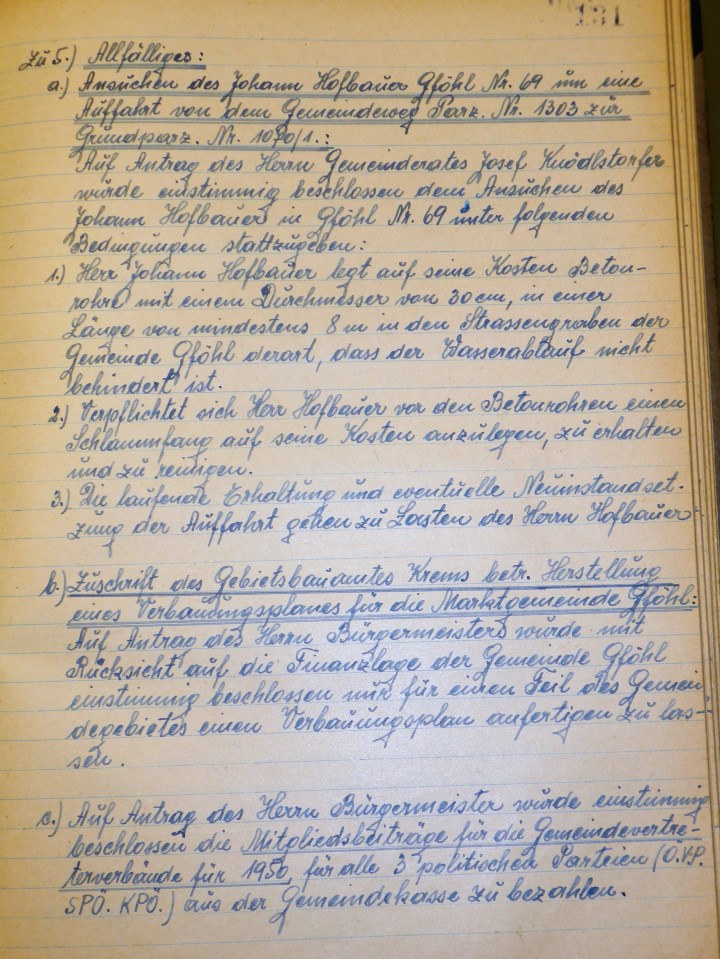 131
Zu 5.) Allfälliges:
a.) Ansuchen des Johann Hofbauer Gföhl Nr. 69 um eine
Auffahrt von dem Gemeindeweg Parz. Nr. 1303 zur
Grundparz. Nr. /1.:
Auf Antrag des Herrn Gemeinderates Josef Knödlstorfer
wurde einstimmig beschlossen dem Ansuchen des
Johann Hofbauer in Gföhl Nr. 69 unter folgenden
Bedingungen stattzugeben:
1.) Herr Johann Hofbauer legt auf seine Kosten Beton-
rohre mit einem Durchmesser von 30 cm, in einer
Länge von mindestens 8 m in den Strassengraben der
Gemeinde Gföhl derart, dass der Wasserablauf nicht
behindert ist.
2.) Verpflichtet sich Herr Hofbauer vor den Betonrohren einen
Schlammfang auf seine Kosten anzulegen, zu erhalten
und zu reinigen.
3.) Die laufende Erhaltung und eventuelle Neuinstandset-
zung der Auffahrt gehen zu Lasten des Herrn Hofbauer
b.) Zuschrift des Gebietsbauamtes Krems betr. Herstellung
eines Verbauungsplanes für die Marktgemeinde Gföhl:
Auf Antrag des Herrn Bürgermeisters wurde mit
Rücksicht auf die Finanzlage der Gemeinde Gföhl
einstimmig beschlossen nur für einen Teil des Gemein-
degebietes einen Verbauungsplan anfertigen zu las-
sen.
c.) Auf Antrag des Herrn Bürgermeister wurde einstimmig
beschlossen die Mitgliedsbeiträge für die Gemeindevertre-
terverbände für 1950, für alle 3 politischen Parteien (Ö.V.P.
SPÖ. KPÖ.) aus der Gemeindekasse zu bezahlen.